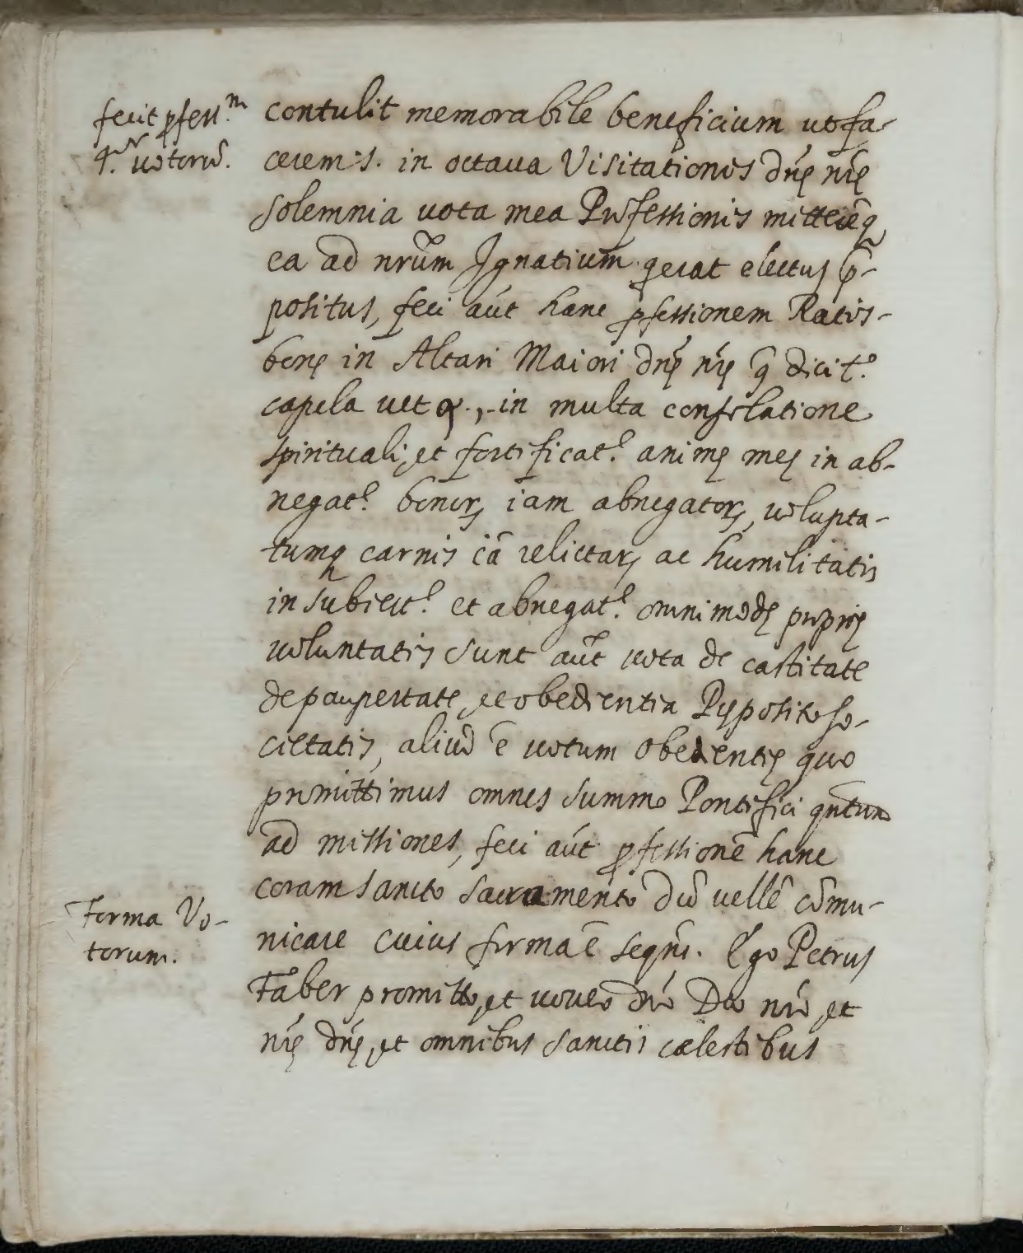 fecit ꝓfess.m
4.r uotorũ.
contulit memorabile beneficium ut fa-
cerem .s. in octaua Visitationis dnę̃ nrę̃
solemnia uota mea Professionis mitterẽq
ea ad nrũm Ignatium q erat electus p̃-
positus, feci aũt hanc ꝓfessionem Ratis-
bonę in Altari Maiori dnę̃ nrę̃ q̃ dicit.r
capela uet in multa consolatione
spirituali, et fortificat.e animę meę in ab-
negat.e bonorꝝ iam abnegatorꝝ, uolupta-
tumq carnis iã relictarꝝ ac humilitatis
in subiect.e et abnegat.e omnimodę proprię
uoluntatis sunt aũt uota de castitate
de paupertate, et obedientia Pręposito so-
cietatis, aliud ẽ uotum obedientię quo
promittimus omnes summo Pontifici qntum
ad missiones, feci aũt ꝓfessionẽ hanc
coram sancto sacramento dũ uellẽ cõmu-
nicare cuius forma ẽ seqñs. Ego Petrus
Forma Vo-
torum.
Faber promitto, et uoueo dño Deo nrõ, et
nrę̃ dnę̃, et omnibus sanctis cælestibus